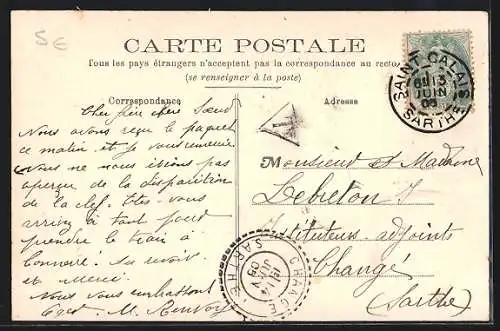 5€
CARTE POSTALE
Tous les pays étrangers n'acceptent pas la correspondance au recto
(se renseigner à la poste)
Correspondance
Adresse
Cher frère chère Sœur
Nous avons reçu le paquet
ce matin et je vous remercie
Nous ne nous étions pas
aperçu de la disparition
de la clef. Etes-vous
arrivés à tant pour
prendre le train à
Connerré. Au revoir
et Merci.
Nous vous embrassons
Monsieur et Madame
Lebreton J
Instituteurs-adjoints
Changé
(Sarthe)
SAINT-CALAIS
13
JUIN
SARTHE
CHANGÉ
JUIN
SARTHE